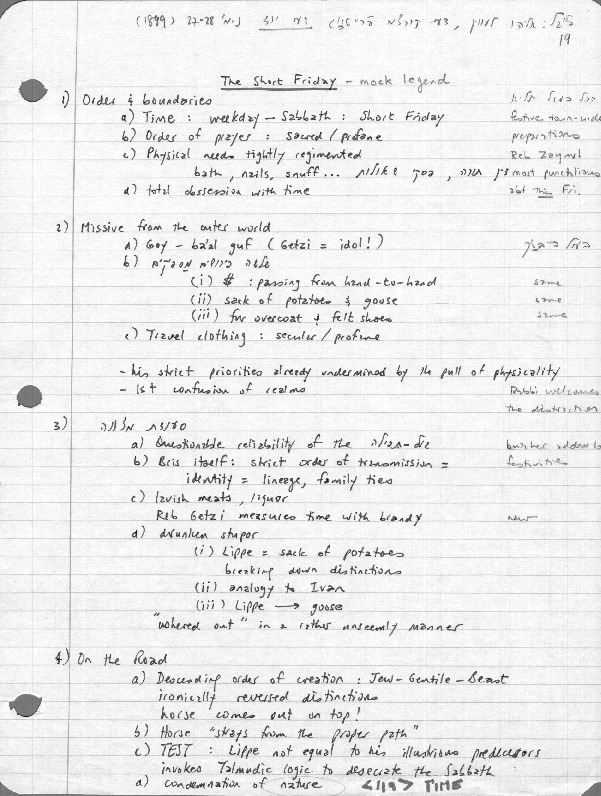 (1899) 27-28
19
The Short Friday - mock legend
1) Order & boundaries
a) Time : weekday - Sabbath : Short Friday
festive town-wide
b) Order of prayer : sacred / profane
preparations
c) Physical needs tightly regimented
Reb Zayml
bath, nails, snuff...
most punctilious
d) total obsession with time
abt this Fri.
2) Missive from the outer world
a) Goy - ba'al guf (Getzi = idol!)
b)
(i) $ : passing from hand-to-hand
same
(ii) sack of potatoes & goose
same
(iii) fur overcoat & felt shoes
same
c) Travel clothing : secular / profane
- his strict priorities already undermined by the pull of physicality
- 1st confusion of realms
Rabbi welcomes
the distraction
3)
a) Questionable reliability of the
b) Bris itself : strict order of transmission =
festivities
identity = lineage, family ties
c) lavish meats, liquor
Reb Getzi measures time with brandy
new
d) drunken stupor
(i) Lippe = sack of potatoes
breaking down distinctions
(ii) analogy to Ivan
(iii) Lippe → goose
"ushered out" in a rather unseemly manner
4) On the Road
a) Descending order of creation : Jew - Gentile - Beast
ironically reversed distinctions
horse comes out on top!
b) Horse "strays from the proper path"
c) TEST : Lippe not equal to his illustrious predecessors
invokes Talmudic logic to desecrate the Sabbath
d) condemnation of nature <1/9> TIME